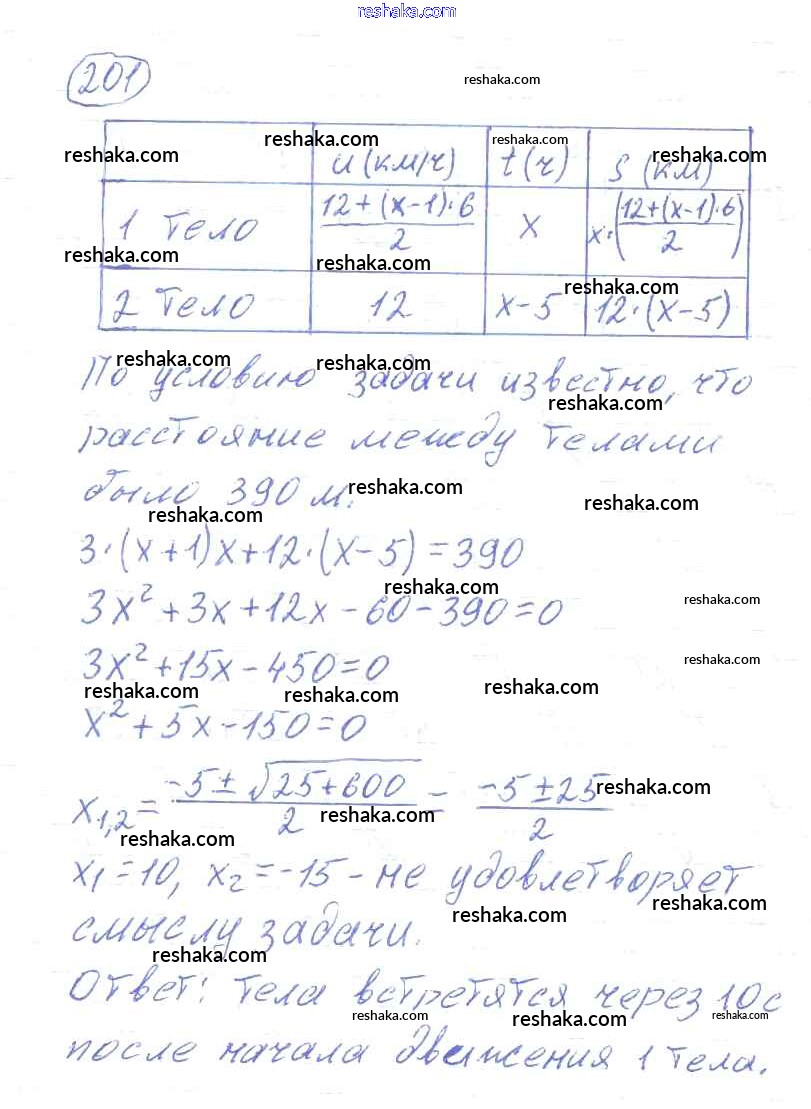 reshaka.com
201
reshaka.com
reshaka.com reshaka.com reshaka.com reshaka.com
u (км/ч) t (ч) S (км)
1 тело (12+(x-1)·6)/2 x x·((12+(x-1)·6)/2)
reshaka.com reshaka.com
2 тело 12 x-5 12·(x-5)
reshaka.com
reshaka.com reshaka.com
По условию задачи известно, что
reshaka.com
расстояние между телами
было 390 м.
reshaka.com reshaka.com
reshaka.com
3·(x+1)x+12·(x-5)=390
reshaka.com
3x²+3x+12x-60-390=0
reshaka.com
3x²+15x-450=0
reshaka.com
reshaka.com reshaka.com reshaka.com
x²+5x-150=0
x1,2=(-5±√(25+600))/2=(-5±25)/2
reshaka.com
reshaka.com reshaka.com
x1=10, x2=-15 - не удовлетворяет
reshaka.com reshaka.com
смыслу задачи.
reshaka.com
Ответ: тела встретятся через 10 с
reshaka.com reshaka.com reshaka.com
после начала движения 1 тела.